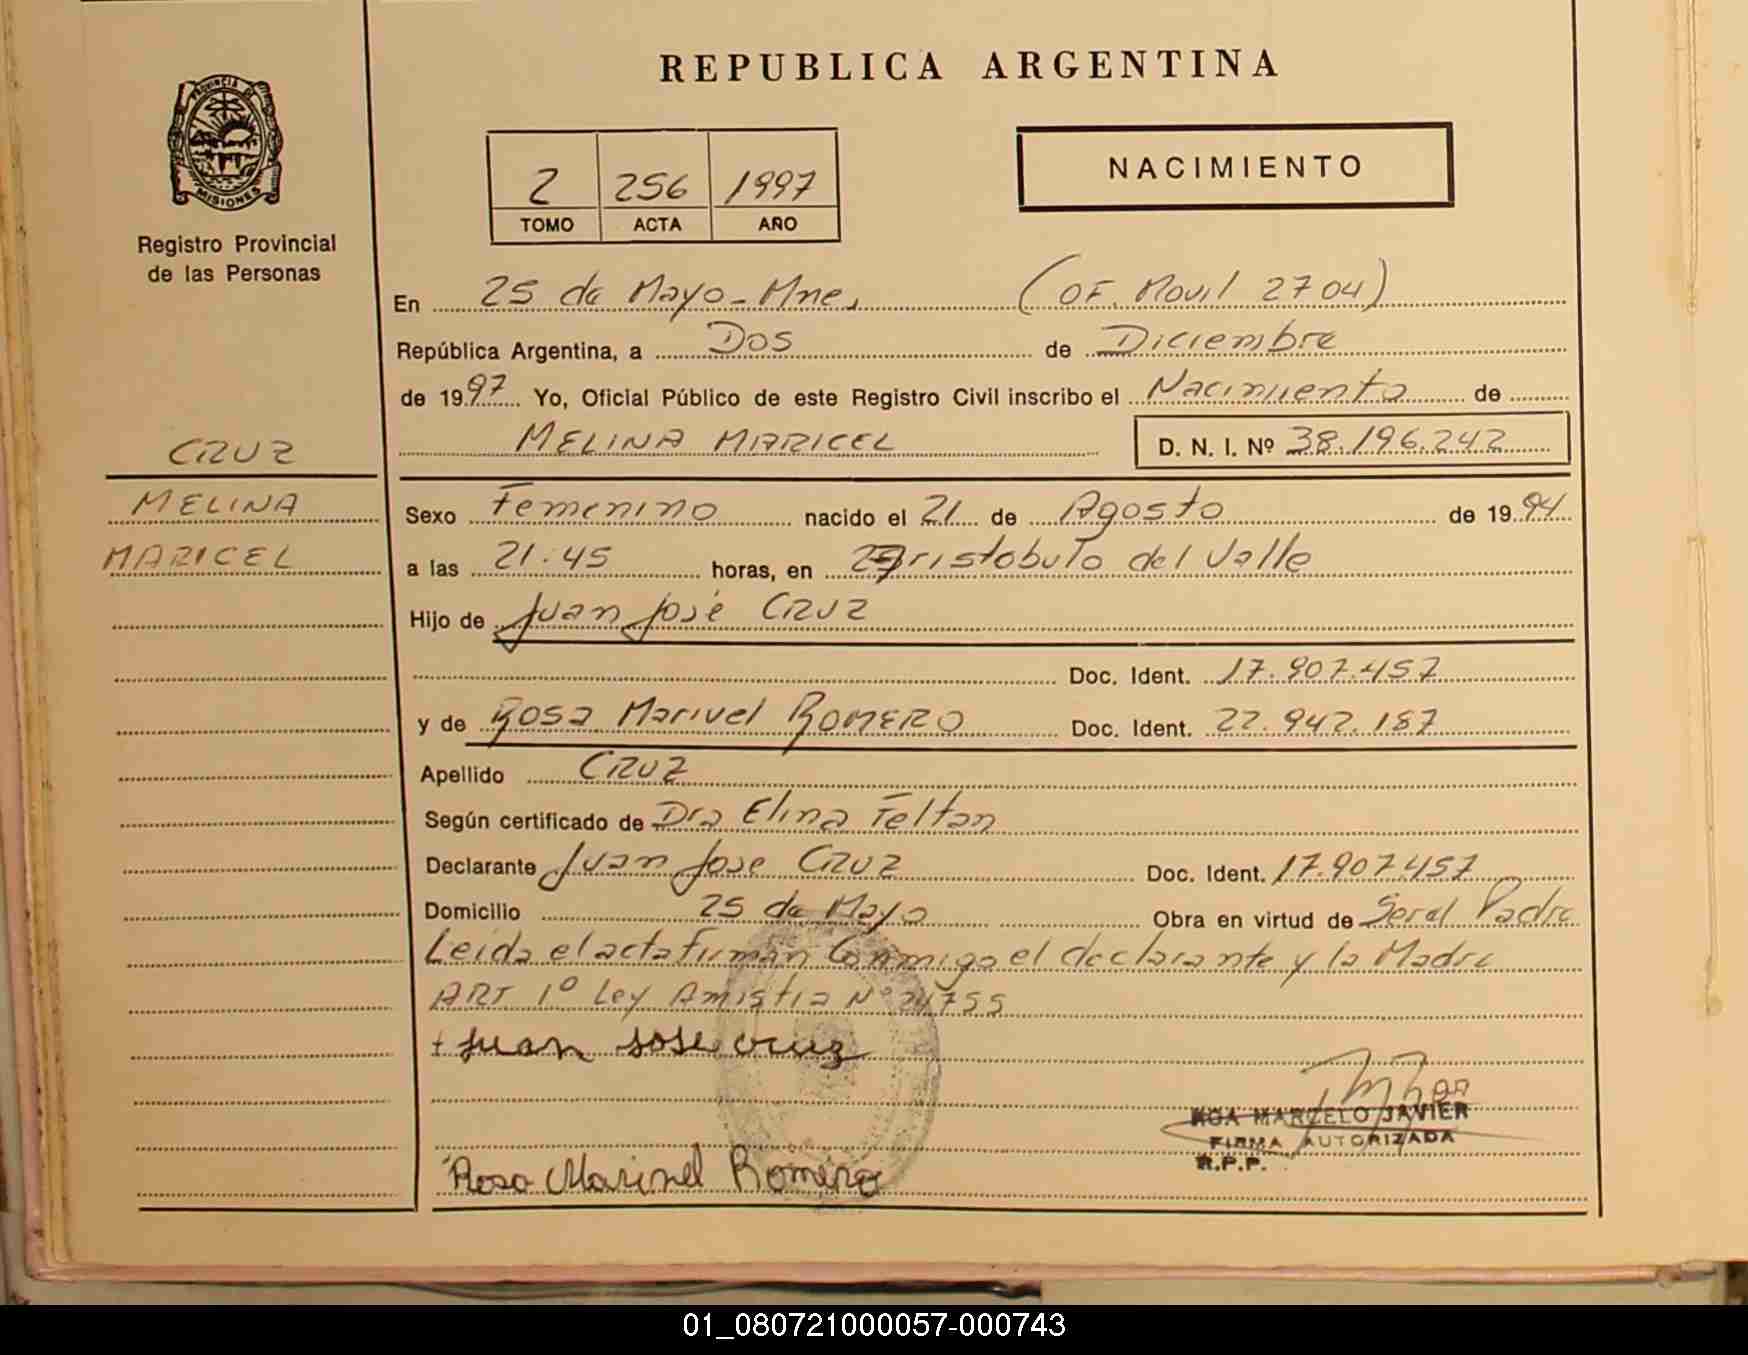 REPUBLICA ARGENTINA
PROVINCIA DE
MISIONES
Registro Provincial
de las Personas
2 256 1997
TOMO ACTA AÑO
NACIMIENTO
En 25 de Mayo - Mnes (OF. Movil 2704)
República Argentina, a Dos de Diciembre
de 1997 Yo, Oficial Público de este Registro Civil inscribo el Nacimiento de
MELINA MARICEL D. N. I. Nº 38.196.242
CRUZ
MELINA
MARICEL
Sexo Femenino nacido el 21 de Agosto de 1994
a las 21:45 horas, en Aristobulo del Valle
Hijo de Juan José CRUZ
Doc. Ident. 17.907.457
y de Rosa Marivel ROMERO Doc. Ident. 22.942.187
Apellido CRUZ
Según certificado de Dra Elina Feltan
Declarante Juan Jose CRUZ Doc. Ident. 17.907.457
Domicilio 25 de Mayo Obra en virtud de Ser el Padre
Leida el acta firman Conmigo el declarante y la Madre
ART 1º Ley Amistia Nº 24755
+ Juan Jose cruz
ROA MARCELO JAVIER
FIRMA AUTORIZADA
R.P.P.
Rosa Marivel Romero
01_080721000057-000743